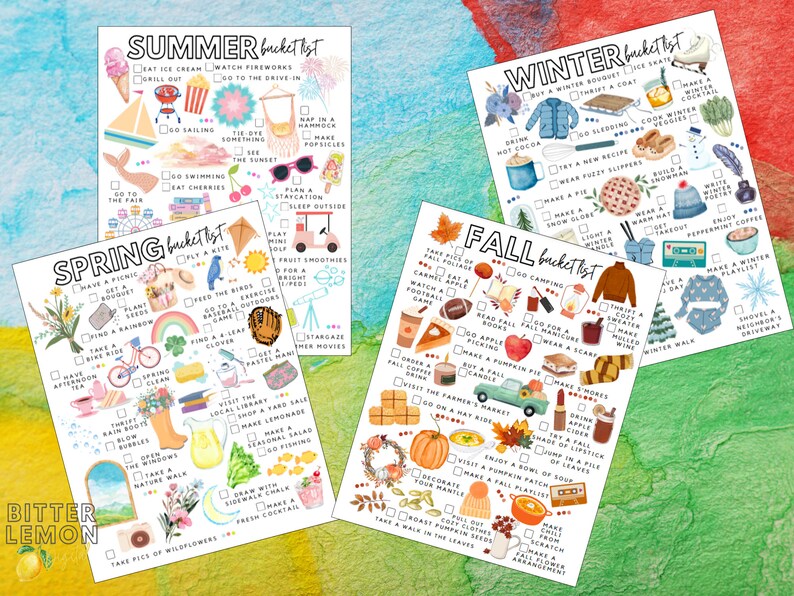 SUMMER bucket list
EAT ICE CREAM
WATCH FIREWORKS
GRILL OUT
GO TO THE DRIVE-IN
GO SAILING
TIE-DYE
SOMETHING
NAP IN A
HAMMOCK
MAKE
POPSICLES
SEE
THE SUNSET
GO SWIMMING
EAT CHERRIES
GO
TO
THE FAIR
PLAN A
STAYCATION
SLEEP OUTSIDE
MINI
GOLF
FRUIT SMOOTHIES
STARGAZE
WINTER bucket list
BUY A WINTER BOUQUET
ICE SKATE
THRIFT A COAT
MAKE A
WINTER
COCKTAIL
DRINK
HOT COCOA
GO SLEDDING
COOK WINTER
VEGGIES
TRY A NEW RECIPE
WEAR FUZZY SLIPPERS
BUILD A
SNOWMAN
MAKE A PIE
WRITE
WINTER
POETRY
MAKE A
SNOW GLOBE
WEAR A
WARM HAT
LIGHT A
WINTER
CANDLE
GET
TAKEOUT
ENJOY
PEPPERMINT COFFEE
MAKE A WINTER
PLAYLIST
SHOVEL A
NEIGHBOR'S
DRIVEWAY
WINTER WALK
SPRING bucket list
HAVE A PICNIC
FLY A KITE
GET A
BOUQUET
PLANT
SEEDS
FEED THE BIRDS
FIND A RAINBOW
GO TO A
BASEBALL
GAME
EXERCISE
OUTDOORS
TAKE A
BIKE RIDE
FIND A 4-LEAF
CLOVER
HAVE
AFTERNOON
TEA
SPRING
CLEAN
GET A
PASTEL MANI
VISIT THE
LOCAL LIBRARY
THRIFT
RAIN BOOTS
SHOP A YARD SALE
MAKE LEMONADE
BLOW
BUBBLES
MAKE A
SEASONAL SALAD
OPEN
THE WINDOWS
GO FISHING
TAKE A
NATURE WALK
DRAW WITH
SIDEWALK CHALK
MAKE A
FRESH COCKTAIL
TAKE PICS OF WILDFLOWERS
FALL bucket list
TAKE PICS OF
FALL FOLIAGE
GO CAMPING
EAT A
CARAMEL APPLE
WATCH A
FOOTBALL
GAME
READ FALL
BOOKS
GO FOR A
FALL MANICURE
THRIFT A
COZY
SWEATER
MAKE
MULLED
WINE
GO APPLE
PICKING
WEAR A SCARF
MAKE A PUMPKIN PIE
ORDER A
FALL
COFFEE
DRINK
BUY A FALL
CANDLE
MAKE S'MORES
VISIT THE FARMER'S MARKET
GO ON A HAY RIDE
DRINK
APPLE
CIDER
TRY A FALL
SHADE OF LIPSTICK
ENJOY A BOWL OF SOUP
JUMP IN A PILE
OF LEAVES
VISIT A PUMPKIN PATCH
MAKE A FALL PLAYLIST
DECORATE
YOUR MANTLE
PULL OUT
COZY CLOTHES
MAKE
CHILI
FROM
SCRATCH
ROAST PUMPKIN SEEDS
TAKE A WALK IN THE LEAVES
MAKE A
FALL FLOWER
ARRANGEMENT
BITTER
LEMON